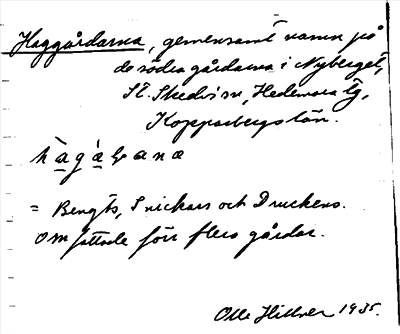 Haggårdarna, gemensamt namn på
de södra gårdarna i Nyberget,
St. Skedvi sn, Hedemora tg,
Kopparbergs län.
= Bengts, Snickars och Druckens.
Omfattade förr flera gårdar.
Olle Hillver 1935.